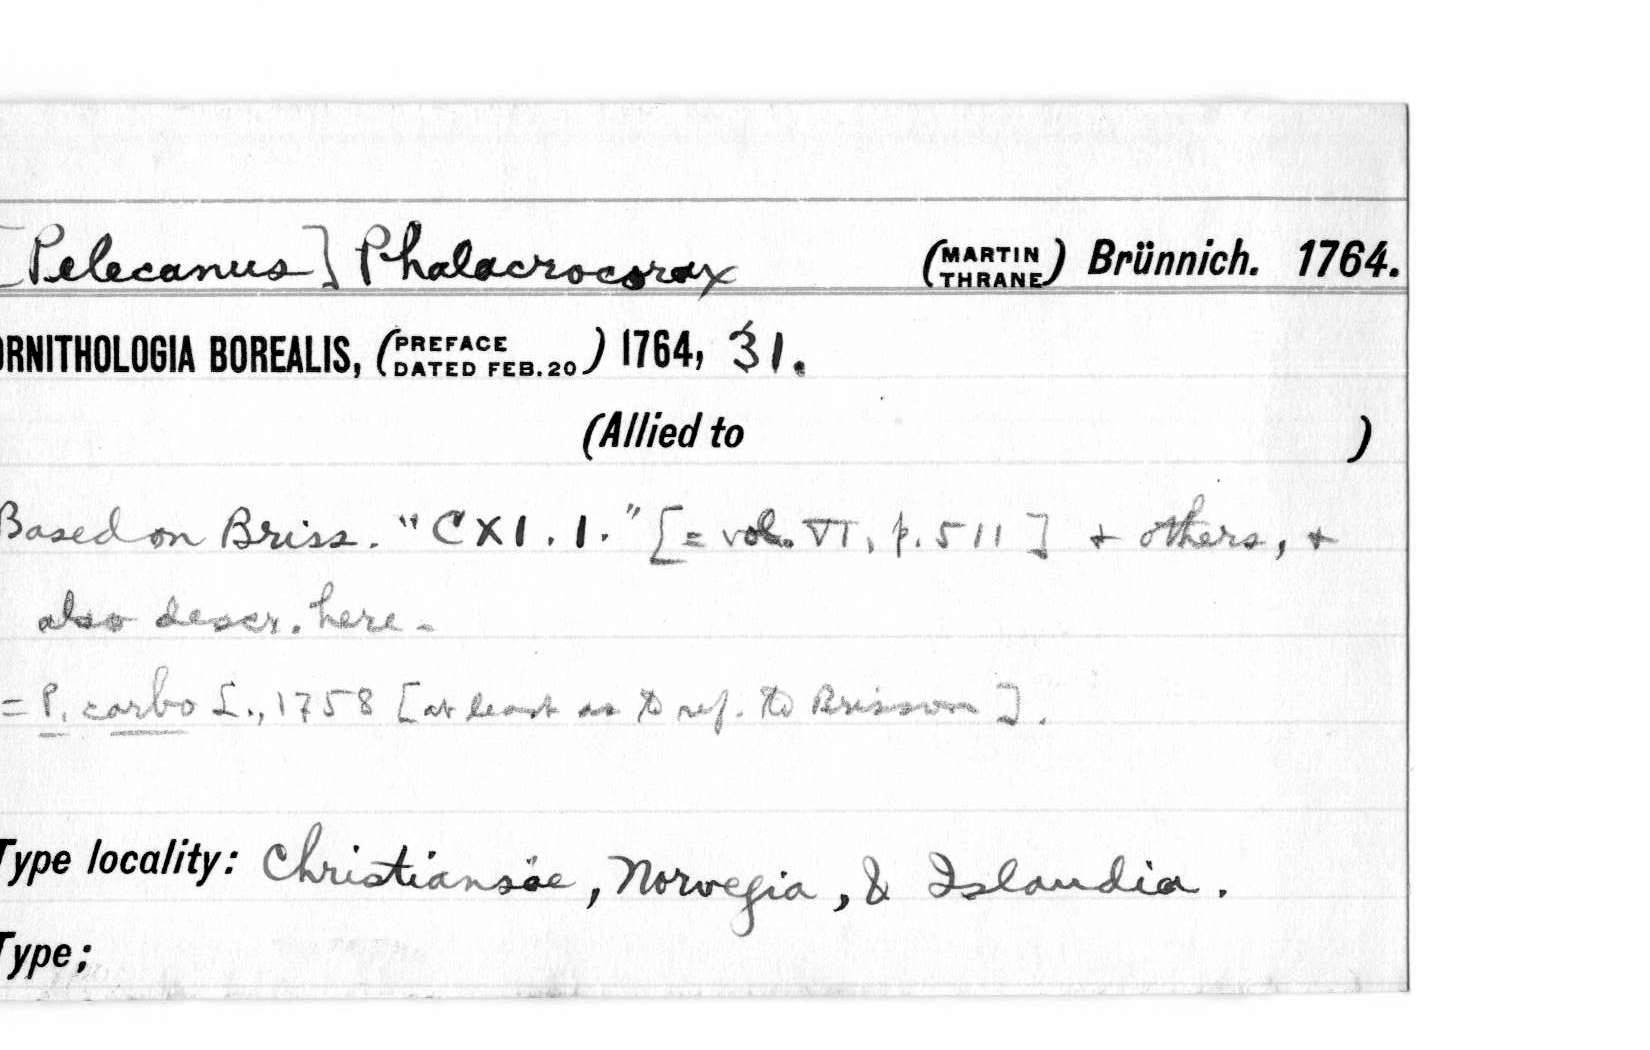 [Pelecanus] Phalacrocorax (MARTIN THRANE) Brünnich. 1764.
ORNITHOLOGIA BOREALIS, (PREFACE DATED FEB. 20) 1764, 31.
(Allied to )
Based on Briss. "CXI. 1." [= vol. VI, p. 511] + others, +
also descr. here -
= P. carbo L., 1758 [at least as to ref. to Brisson].
Type locality: Christiansöe, Norvegia, & Islandia.
Type;